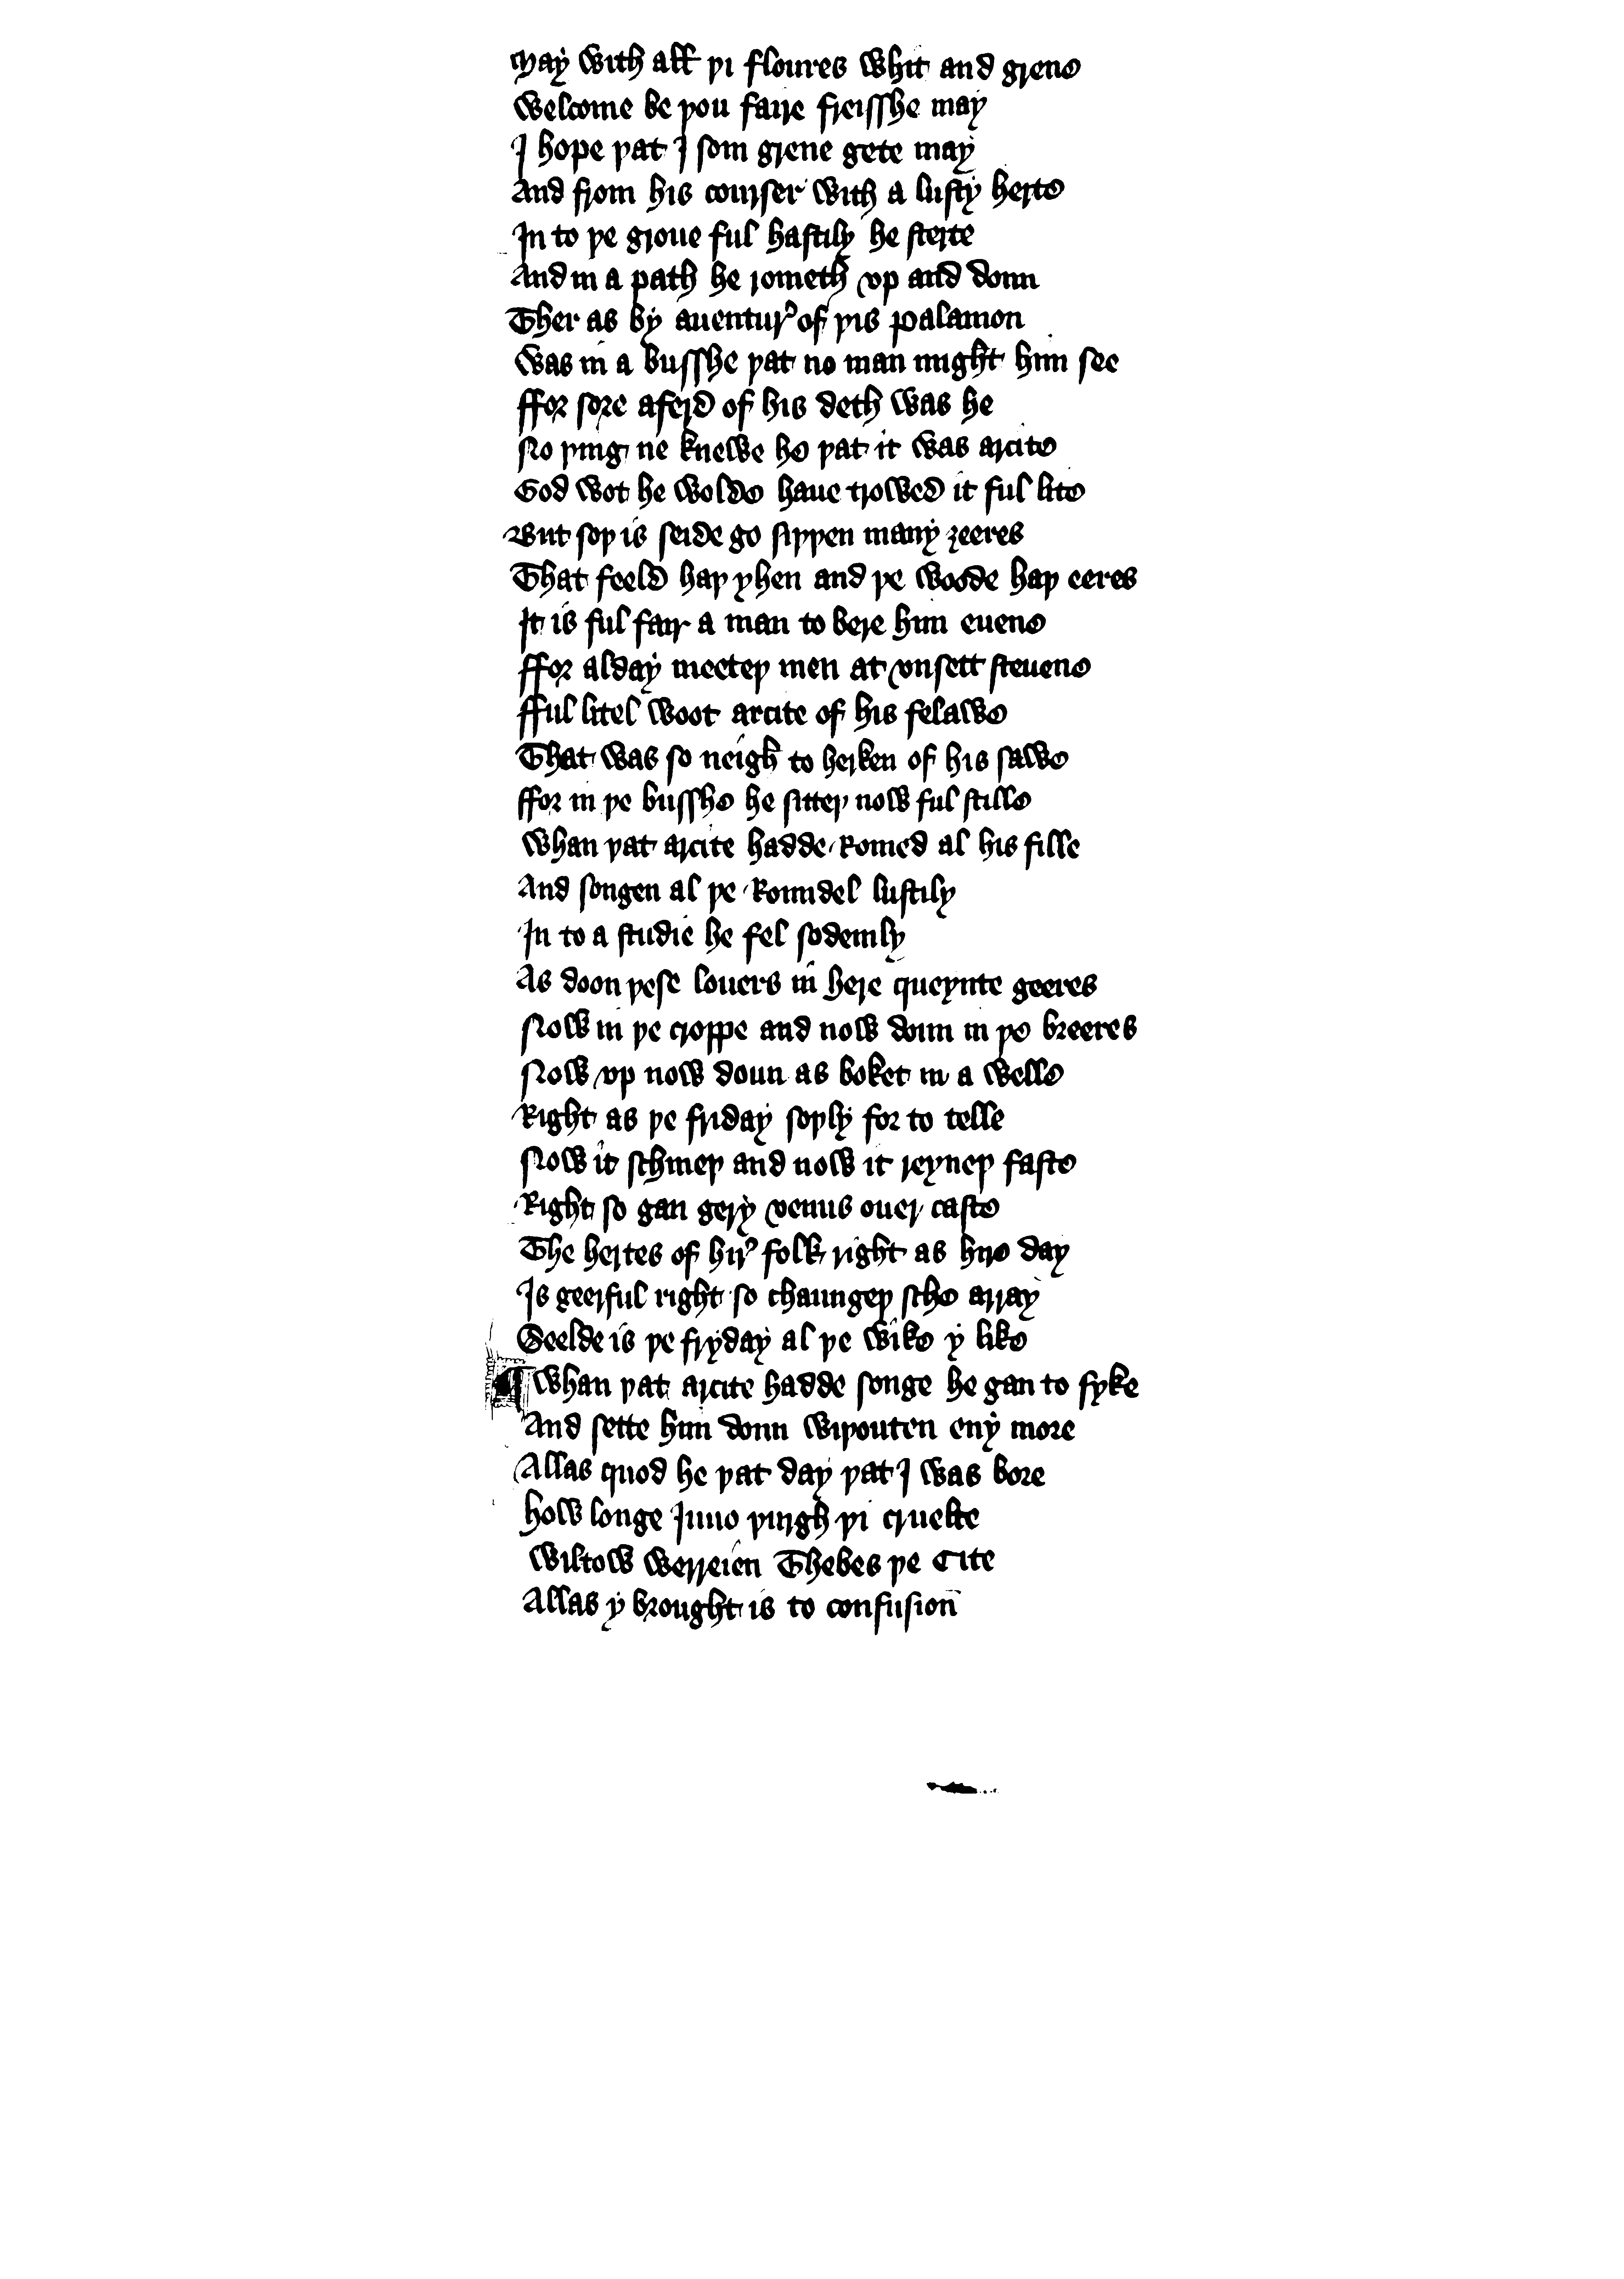 May with all þi floures whit and grene
Welcome be þou faire freissħe may
I hope þat I som grene gete may
And from his courser with a lusty herte
In to þe groue ful hastily he sterte
And in a path he rometh vp and doun
Ther as by auentur' of þis palamon
Was in a busshe þat no man might him see
ffor sore aferd of his deth was he
No þing ne knewe he þat it was arcite
God wot he wolde haue trowed it ful lite
But soþ is seide go siþþen many ȝeeres
That feeld haþ yhen and þe woode haþ eeres
It is ful fair a man to bere him euene
ffor alday meeteþ men at vnsett steuene
fful litel woot arcite of his felawe
That was so neigh to herken of his sawe
ffor in þe busshe he sitteþ now ful stille
Whan þat arcite hadde Romed al his fille
And songen al þe Roundel lustily
In to a studie he fel sodeinly
As doon þese louers in here queynte geeres
Now in þe croppe and now doun in þe breeres
Now vp now doun as boket in a welle
Right as þe friday soþly for to telle
Now it schineþ and now it reyneþ faste
Right so gan gery venus ouer caste
The hertes of hir' folk right as hire day
Is geerful right so chaungeþ sche array
Seelde is þe fryday al þe wike y like
¶ Whan þat arcite hadde songe he gan to syke
And sette him doun wiþouten eny more
Allas quod he þat day þat I was bore
how longe Juno þurgh þi cruelte
Wiltow werreien Thebes þe Cite
Allas y brought is to confusion